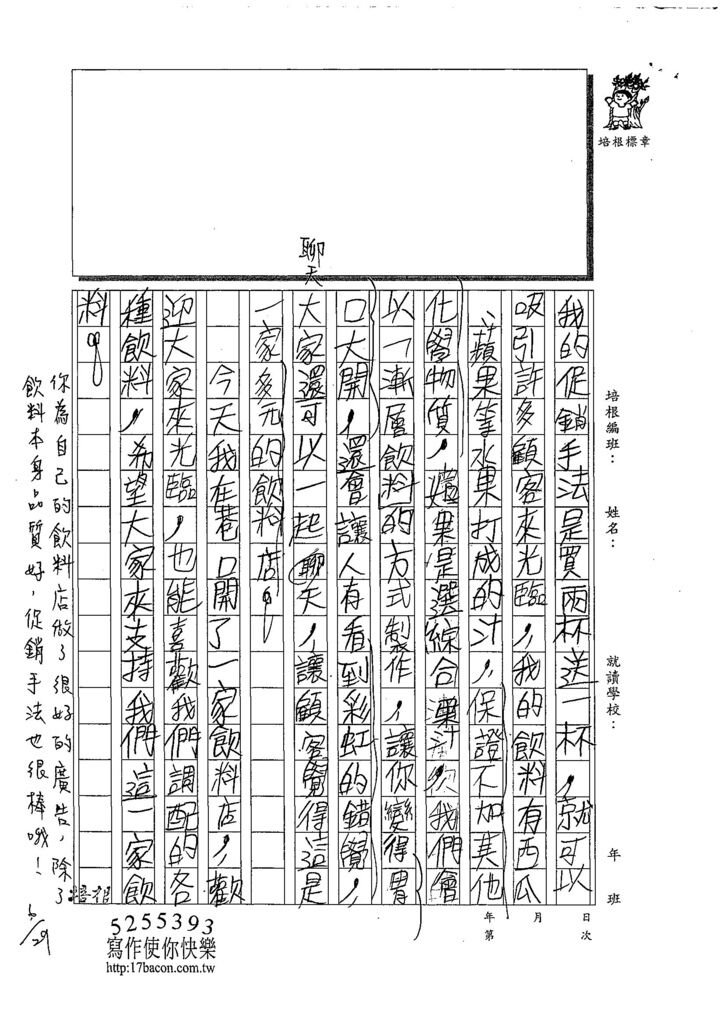 培根標章
培根編班：
姓名：
就讀學校：
年
班
年
月
日
第
次
我的促銷手法是買兩杯送一杯，就可以
吸引許多顧客來光臨，我的飲料有西瓜
、蘋果等水果打成的汁，保證不加其他
化學物質，如果是選綜合果汁我們會
以一漸層飲料的方式製作，讓你變得胃
口大開，還會讓人有看到彩虹的錯覺，
大家還可以一起聊天，讓顧客覺得這是
一家多元的飲料店。
今天我在巷口開了一家飲料店，歡
迎大家來光臨，也能喜歡我們調配的各
種飲料，希望大家來支持我們這一家飲
料。
聊天
你為自己的飲料店做了很好的廣告，除了
飲料本身品質好，促銷手法也很棒哦！
6/29
培根
5255393
寫作使你快樂
http:17bacon.com.tw